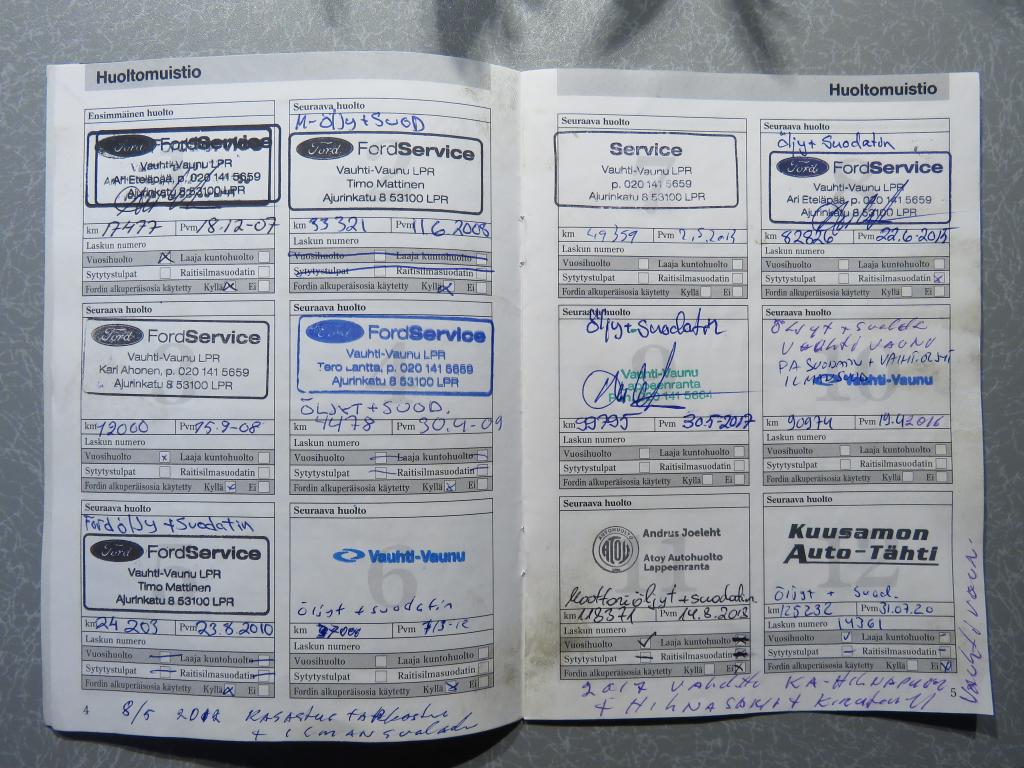 Huoltomuistio
Ensimmäinen huolto
Ford FordService
Vauhti-Vaunu LPR
Ari Eteläpää, p. 020 141 5659
Ajurinkatu 8 53100 LPR
km 17477 Pvm 18.12-07
Laskun numero
Vuosihuolto Laaja kuntohuolto
Sytytystulpat Raitisilmasuodatin
Fordin alkuperäisosia käytetty Kyllä Ei
Seuraava huolto
M-öljy + SUOD
Ford FordService
Vauhti-Vaunu LPR
Timo Mattinen
Ajurinkatu 8 53100 LPR
km 33 321 Pvm 11.6.2008
Laskun numero
Vuosihuolto Laaja kuntohuolto
Sytytystulpat Raitisilmasuodatin
Fordin alkuperäisosia käytetty Kyllä Ei
Seuraava huolto
Ford FordService
Vauhti-Vaunu LPR
Kari Ahonen, p. 020 141 5659
Ajurinkatu 8 53100 LPR
km 12000 Pvm 15.9-08
Laskun numero
Vuosihuolto Laaja kuntohuolto
Sytytystulpat Raitisilmasuodatin
Fordin alkuperäisosia käytetty Kyllä Ei
Seuraava huolto
Ford FordService
Vauhti-Vaunu LPR
Tero Lantta, p. 020 141 5659
Ajurinkatu 8 53100 LPR
ÖLJYT + SUOD.
km 4478 Pvm 30.4-09
Laskun numero
Vuosihuolto Laaja kuntohuolto
Sytytystulpat Raitisilmasuodatin
Fordin alkuperäisosia käytetty Kyllä Ei
Seuraava huolto
Ford öljy + Suodatin
Ford FordService
Vauhti-Vaunu LPR
Timo Mattinen
Ajurinkatu 8 53100 LPR
km 24 203 Pvm 23.8.2010
Laskun numero
Vuosihuolto Laaja kuntohuolto
Sytytystulpat Raitisilmasuodatin
Fordin alkuperäisosia käytetty Kyllä Ei
Seuraava huolto
Vauhti-Vaunu
6
öljyt + suodatin
km Pvm 7/3-12
Laskun numero
Vuosihuolto Laaja kuntohuolto
Sytytystulpat Raitisilmasuodatin
Fordin alkuperäisosia käytetty Kyllä Ei
4
8/5 2012
Huoltomuistio
Seuraava huolto
Service
Vauhti-Vaunu LPR
p. 020 141 5659
Ajurinkatu 8 53100 LPR
km 49359 Pvm 2.5.2013
Laskun numero
Vuosihuolto Laaja kuntohuolto
Sytytystulpat Raitisilmasuodatin
Fordin alkuperäisosia käytetty Kyllä Ei
Seuraava huolto
öljy + Suodatin
Ford FordService
Vauhti-Vaunu LPR
Ari Eteläpää, p. 020 141 5659
Ajurinkatu 8 53100 LPR
km 82826 Pvm 22.6-2015
Laskun numero
Vuosihuolto Laaja kuntohuolto
Sytytystulpat Raitisilmasuodatin
Fordin alkuperäisosia käytetty Kyllä Ei
Seuraava huolto
Öljy + Suodatin
Vauhti-Vaunu
Lappeenranta
km 99795 Pvm 30.5-2017
Laskun numero
Vuosihuolto Laaja kuntohuolto
Sytytystulpat Raitisilmasuodatin
Fordin alkuperäisosia käytetty Kyllä Ei
Seuraava huolto
VAUHTI VAUNU
Vauhti-Vaunu
10
km 90974 Pvm 19.4.2016
Laskun numero
Vuosihuolto Laaja kuntohuolto
Sytytystulpat Raitisilmasuodatin
Fordin alkuperäisosia käytetty Kyllä Ei
Seuraava huolto
AUTOHUOLTO
ATOY
Andrus Joeleht
Atoy Autohuolto
Lappeenranta
Moottoriöljyt + suodatin.
km 118371 Pvm 14.8.2018
Laskun numero
Vuosihuolto Laaja kuntohuolto
Sytytystulpat Raitisilmasuodatin
Fordin alkuperäisosia käytetty Kyllä Ei
Seuraava huolto
Kuusamon
Auto-Tähti
12
Öljyt + Suod.
km 125232 Pvm 31.07.20
Laskun numero 14361
Vuosihuolto Laaja kuntohuolto
Sytytystulpat Raitisilmasuodatin
Fordin alkuperäisosia käytetty Kyllä Ei
2017
+ HIHNASARJA +
5
Vauhtivaunu.